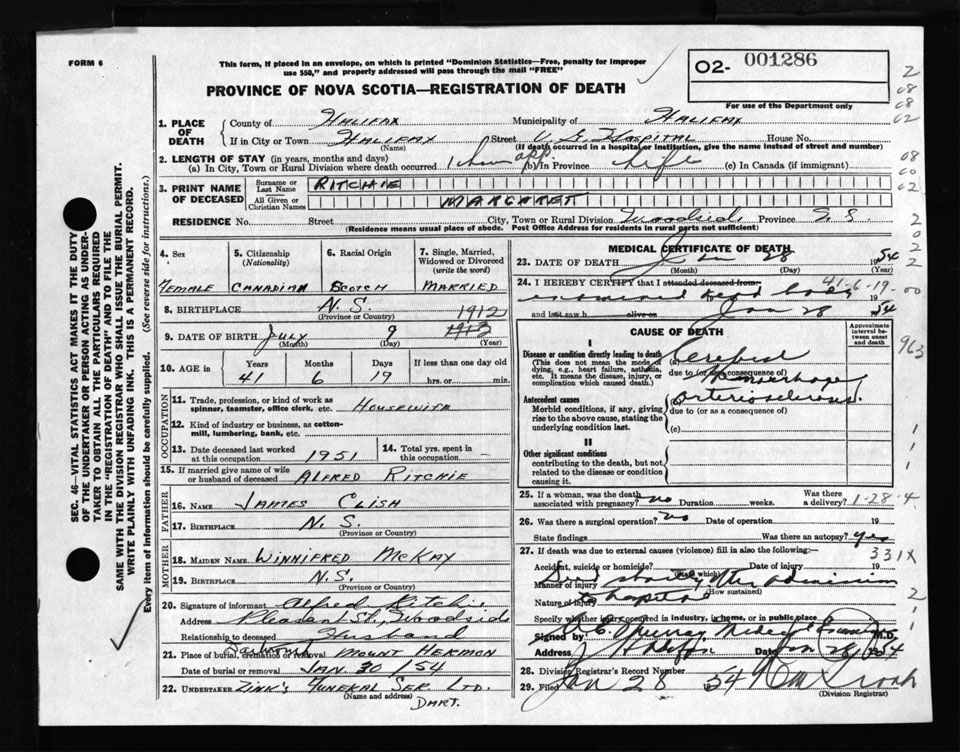 FORM 6
This form, if placed in an envelope, on which is printed "Dominion Statistics—Free, penalty for improper
use $50," and properly addressed will pass through the mail "FREE"
O2- 001286
For use of the Department only
PROVINCE OF NOVA SCOTIA—REGISTRATION OF DEATH
SEC. 46—VITAL STATISTICS ACT MAKES IT THE DUTY
OF THE UNDERTAKER OR PERSON ACTING AS UNDER-
TAKER TO OBTAIN ALL THE PARTICULARS REQUIRED
IN THE "REGISTRATION OF DEATH" AND TO FILE THE
SAME WITH THE DIVISION REGISTRAR WHO SHALL ISSUE THE BURIAL PERMIT.
WRITE PLAINLY WITH UNFADING INK. THIS IS A PERMANENT RECORD.
Every item of Information should be carefully supplied. (See reverse side for instructions.)
1. PLACE OF DEATH
County of HALIFAX Municipality of HALIFAX
If in City or Town HALIFAX Street V. G. HOSPITAL House No.
(Name) (If death occurred in a hospital or institution, give the name instead of street and number)
2. LENGTH OF STAY (in years, months and days)
(a) In City, Town or Rural Division where death occurred 1 hour app. (b) In Province life (c) In Canada (if immigrant)
3. PRINT NAME OF DECEASED
Surname or Last Name RITCHIE
All Given or Christian Names MARGARET
RESIDENCE No. Street City, Town or Rural Division Woodside Province N.S.
(Residence means usual place of abode. Post Office Address for residents in rural parts not sufficient)
4. Sex FEMALE
5. Citizenship (Nationality) CANADIAN
6. Racial Origin SCOTCH
7. Single, Married, Widowed or Divorced (write the word) MARRIED
8. BIRTHPLACE N.S.
(Province or Country)
9. DATE OF BIRTH JULY 9 1912 1913
(Month) (Day) (Year)
10. AGE in Years 41 Months 6 Days 19 If less than one day old hrs. or min.
OCCUPATION
11. Trade, profession, or kind of work as
spinner, teamster, office clerk, etc. HOUSEWIFE
12. Kind of industry or business, as cotton-
mill, lumbering, bank, etc.
13. Date deceased last worked at this occupation 1951
14. Total yrs. spent in this occupation
15. If married give name of wife or husband of deceased ALFRED RITCHIE
FATHER
16. NAME JAMES CLISH
17. BIRTHPLACE N.S.
(Province or Country)
MOTHER
18. MAIDEN NAME WINNIFRED MCKAY
19. BIRTHPLACE N.S.
(Province or Country)
20. Signature of informant Alfred Ritchie
Address Pleasant St., Woodside
Relationship to deceased Husband
21. Place of burial, cremation or removal Dartmouth MOUNT HERMON
Date of burial or removal JAN. 30 / 54
22. UNDERTAKER ZINK'S FUNERAL SER. LTD.
(Name and address)
DART.
MEDICAL CERTIFICATE OF DEATH
23. DATE OF DEATH Jan 28 1954
(Month) (Day) (Year)
41-6-19
24. I HEREBY CERTIFY that I attended deceased from
examined dead body 19
and last saw h alive on Jan 28 1954
CAUSE OF DEATH
Approximate interval between onset and death
I
Disease or condition directly leading to death
(This does not mean the mode of dying, e.g., heart failure, asthenia, etc. It means the disease, injury, or complication which caused death.)
Cerebral
due to (or as a consequence of)
Hemorrhage
Antecedent causes
Morbid conditions, if any, giving rise to the above cause, stating the underlying condition last.
arteriosclerosis
due to (or as a consequence of)
(c)
II
Other significant conditions
contributing to the death, but not related to the disease or condition causing it.
25. If a woman, was the death associated with pregnancy? no Duration weeks. Was there a delivery? 1-28-4
26. Was there a surgical operation? no Date of operation 19
State findings Was there an autopsy? yes
27. If death was due to external causes (violence) fill in also the following:— 331X
Accident, suicide or homicide? (State which) Date of injury 19
Manner of injury Died shortly after admission
(How sustained)
Nature of injury to hospital
Specify whether injury occurred in industry, in home, or in public place
Signed by Murray Medical Examiner M.D.
Address Halifax Jan 28 1954
28. Division Registrar's Record Number
29. Filed Jan 28 1954
(Division Registrar)
2
08
08
02
08
00
02
2
02
2
00
963
1
1
1
2
1